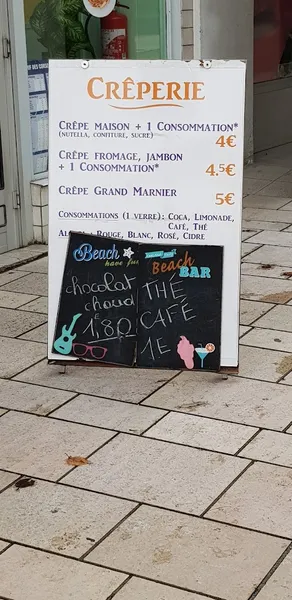 CRÊPERIE
CRÊPE MAISON + 1 CONSOMMATION*
(NUTELLA, CONFITURE, SUCRE)
4€
CRÊPE FROMAGE, JAMBON
+ 1 CONSOMMATION*
4,5€
CRÊPE GRAND MARNIER
5€
CONSOMMATIONS (1 VERRE) : COCA, LIMONADE,
CAFÉ, THÉ
ROUGE, BLANC, ROSÉ, CIDRE
Beach
have fun
chocolat
chaud
1,80
Beach
BAR
THÉ
CAFÉ
1E